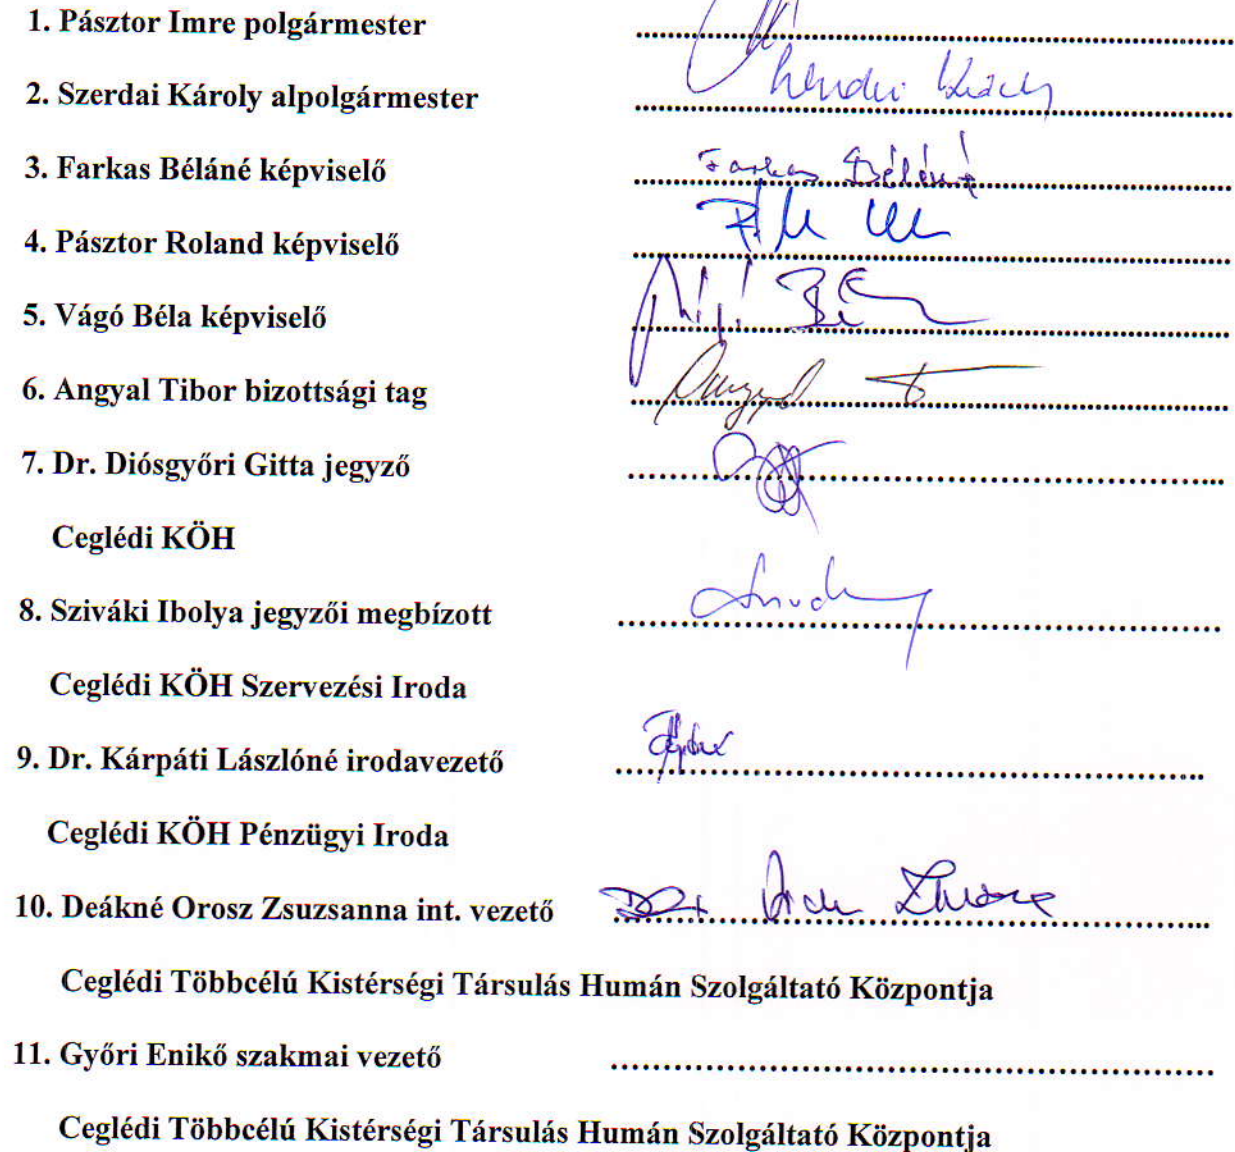 1. Pásztor Imre polgármester
2. Szerdai Károly alpolgármester
3. Farkas Béláné képviselő Farkas Béláné
4. Pásztor Roland képviselő
5. Vágó Béla képviselő
6. Angyal Tibor bizottsági tag Angyal T
7. Dr. Diósgyőri Gitta jegyző
Ceglédi KÖH
8. Sziváki Ibolya jegyzői megbízott
Ceglédi KÖH Szervezési Iroda
9. Dr. Kárpáti Lászlóné irodavezető
Ceglédi KÖH Pénzügyi Iroda
10. Deákné Orosz Zsuzsanna int. vezető
Ceglédi Többcélú Kistérségi Társulás Humán Szolgáltató Központja
11. Győri Enikő szakmai vezető
Ceglédi Többcélú Kistérségi Társulás Humán Szolgáltató Központja